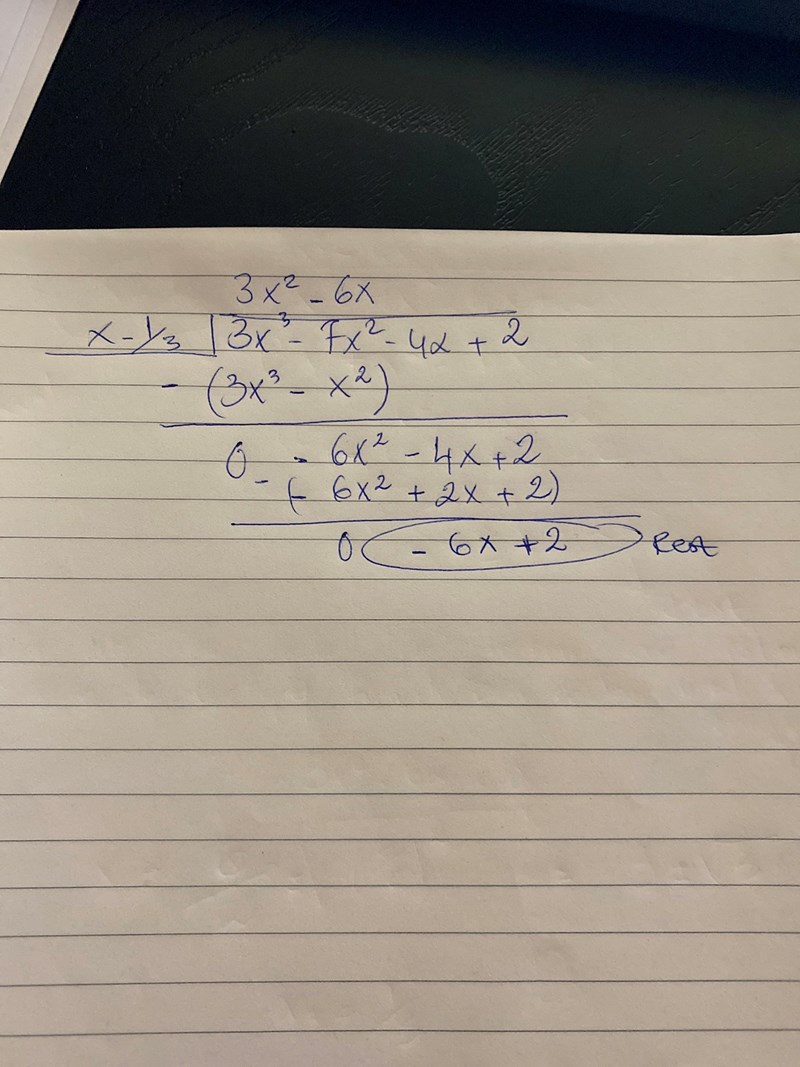 3x² - 6x
x - 1/3 | 3x³ - 7x² - 4x + 2
- (3x³ - x²)
0 - 6x² - 4x + 2
- (- 6x² + 2x + 2)
0 - 6x + 2 Rest